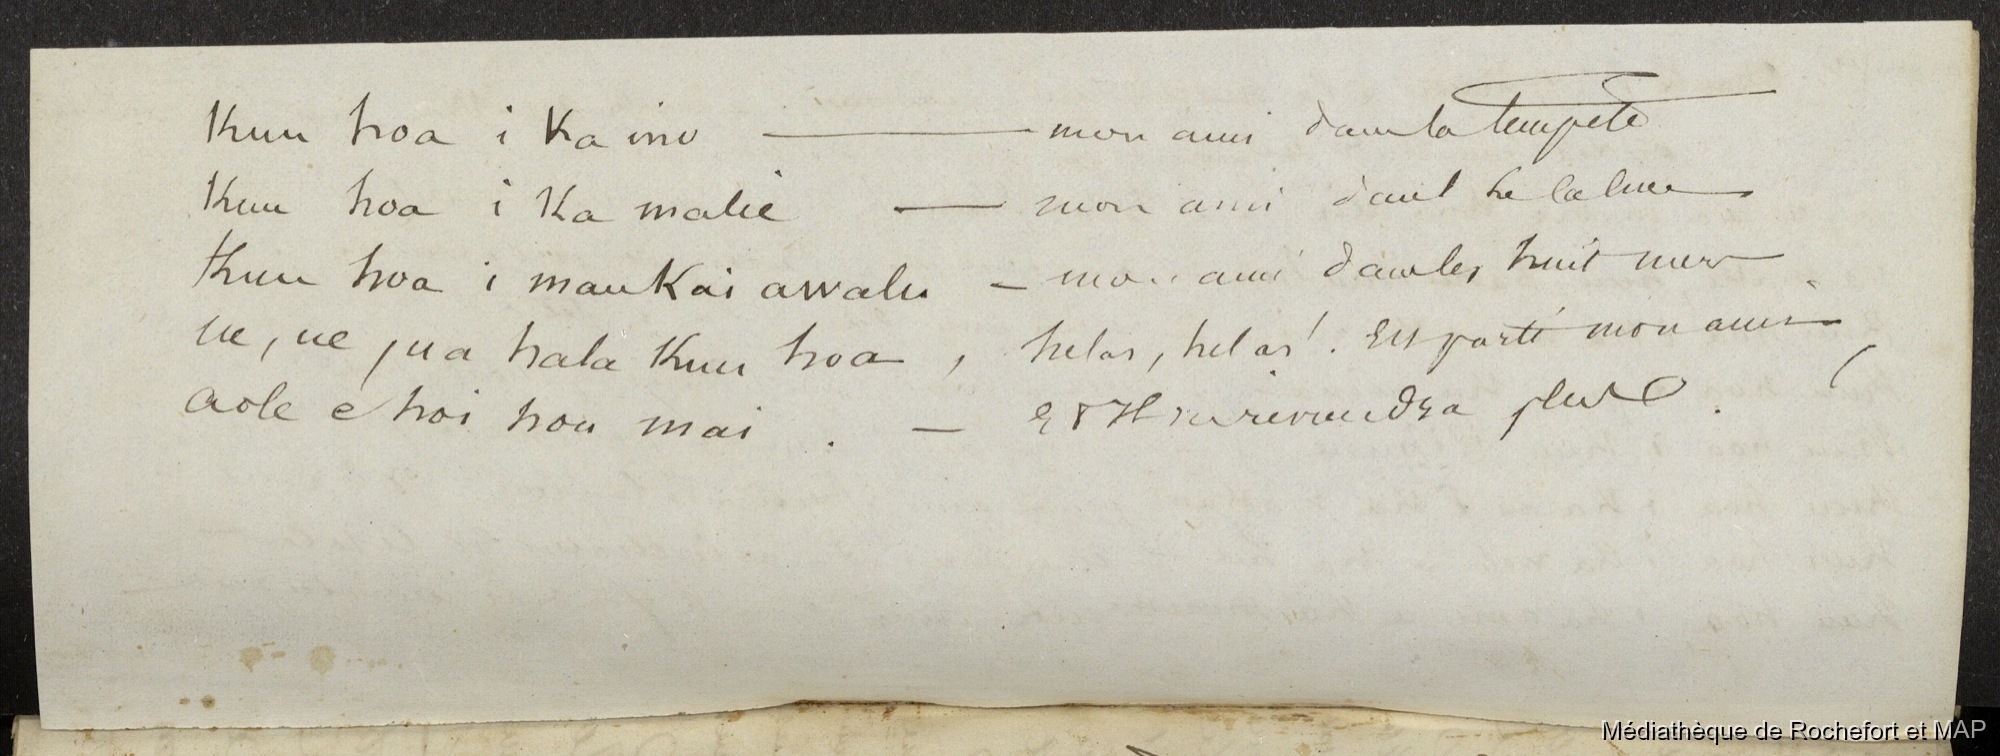 Kuu hoa i Ka ino — mon ami dans la tempête
Kuu hoa i Ka malie — mon ami dans le calme
Kuu hoa i mau Kai awalu – mon ami dans les huit mers
ue, ue, ua hala Kuu hoa, helas, helas! Est parti mon ami
aole e hoi hou mai. — Et Il ne reviendra plus.
Médiathèque de Rochefort et MAP